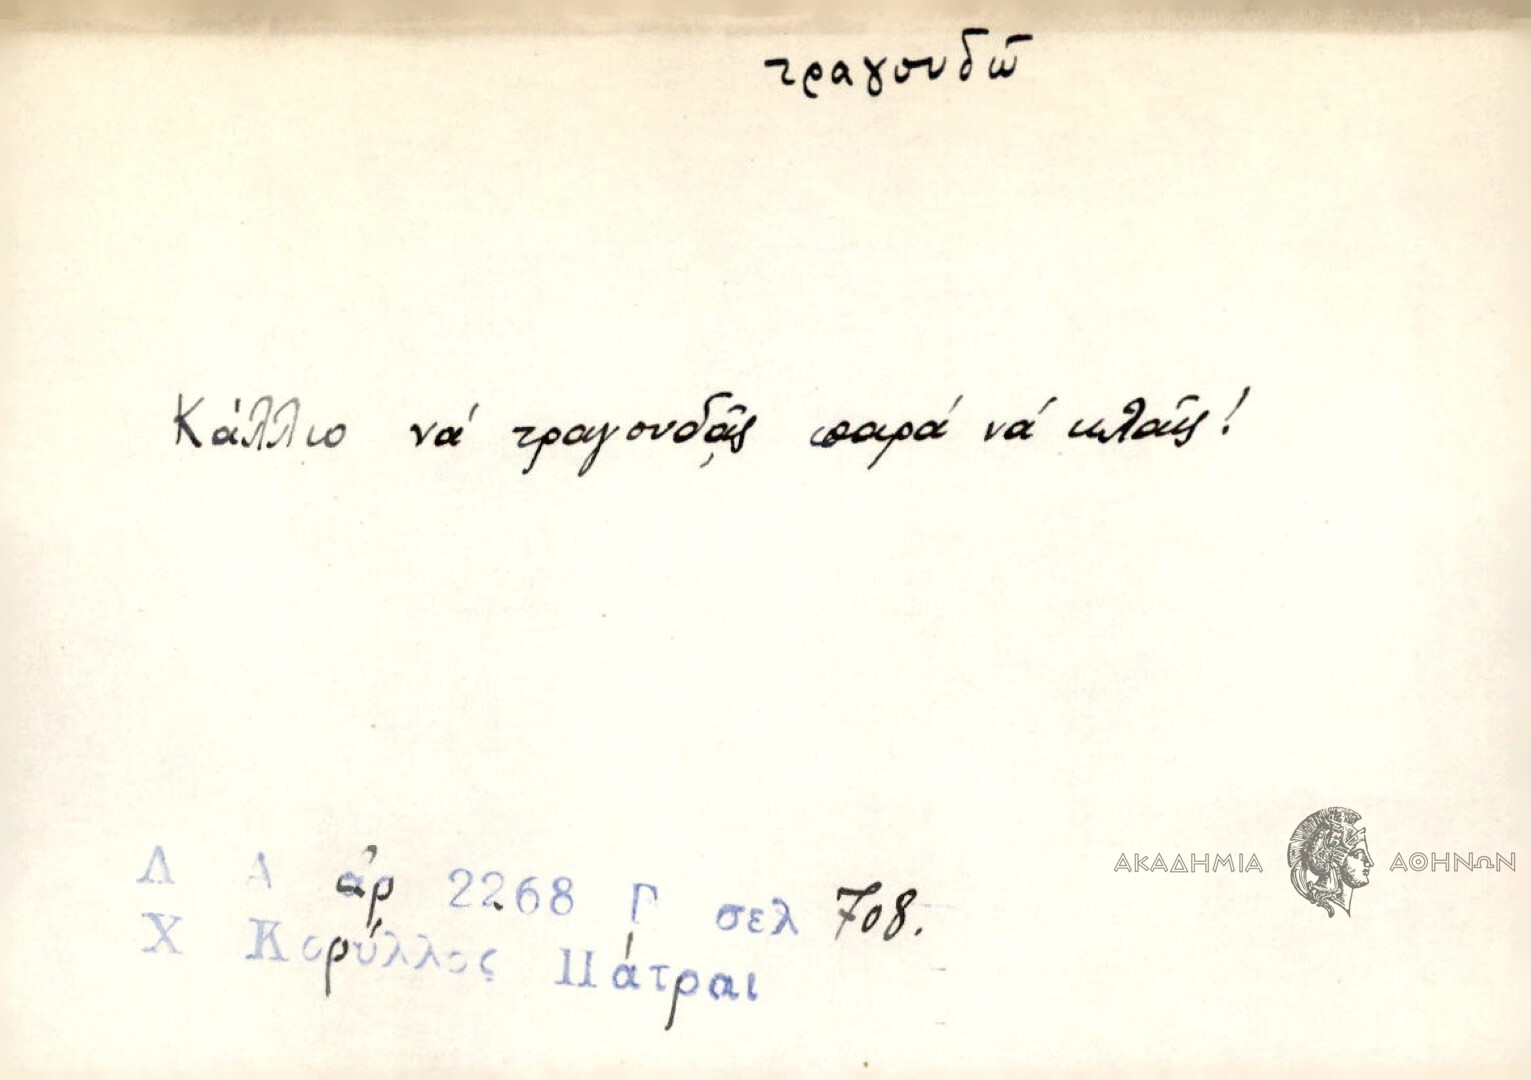 τραγουδῶ
Κάλλιο νά τραγουδᾷς παρά νά κλαῖς!
ΑΚΑΔΗΜΙΑ ΑΘΗΝΩΝ
Λ Α ἀρ 2268 Γ σελ 708.
Χ Κορύλλος Πάτραι